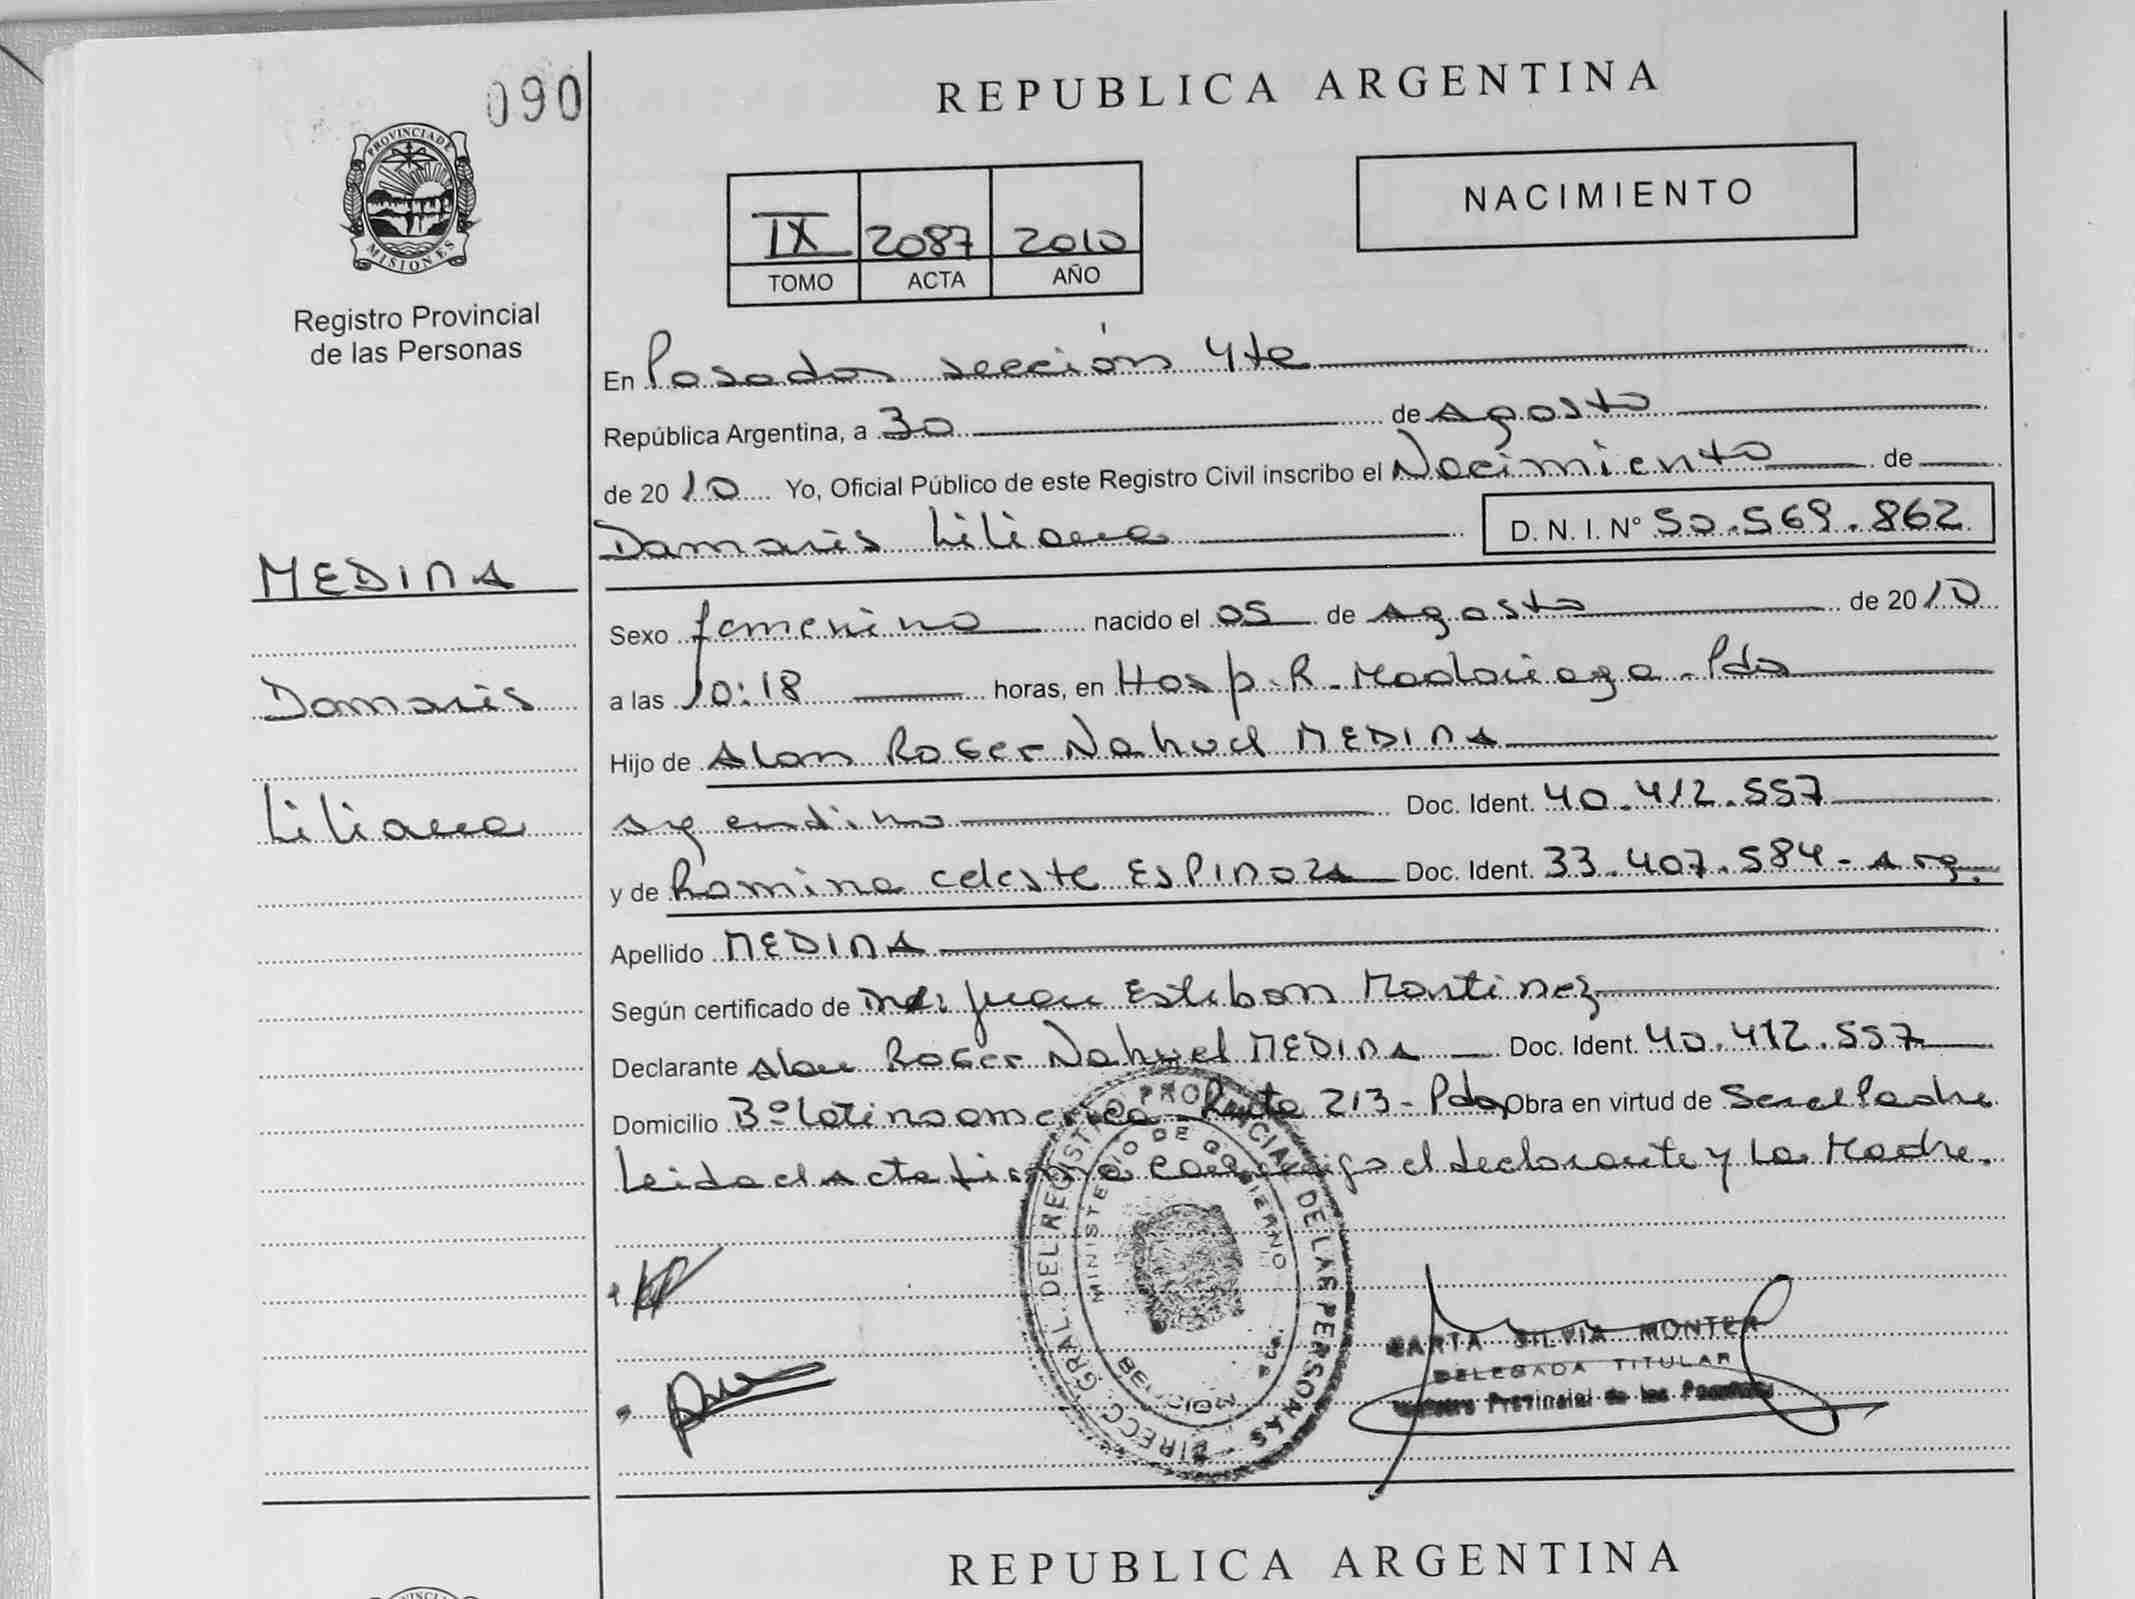 090
REPUBLICA ARGENTINA
PROVINCIA DE MISIONES
Registro Provincial
de las Personas
IX 2087 2010
TOMO ACTA AÑO
NACIMIENTO
En Posadas sección 4ta
República Argentina, a 30 de Agosto
de 2010 Yo, Oficial Público de este Registro Civil inscribo el Nacimiento de
Damaris Liliana D. N. I. Nº 50.569.862
MEDINA
Damaris
Liliana
Sexo femenino nacido el 05 de Agosto de 2010
a las 10:18 horas, en Hosp. R. Madariaga - Pdas
Hijo de Alan Roger Nahuel MEDINA
argentino Doc. Ident. 40.412.557
y de Romina Celeste ESPINOZA Doc. Ident. 33.407.584 - Arg.
Apellido MEDINA
Según certificado de Juan Esteban Martinez
Declarante Alan Roger Nahuel MEDINA Doc. Ident. 40.412.557
Domicilio Bº Latinoamerica - Ruta 213 - Pdas Obra en virtud de Ser el Padre
Leida el Acta firma conmigo el declarante y La Madre.
DIRECC. GRAL. DEL REGISTRO PROVINCIAL DE LAS PERSONAS
MINISTERIO DE GOBIERNO
SILVIA MONTER
DELEGADA TITULAR
Registro Provincial de las Personas
REPUBLICA ARGENTINA